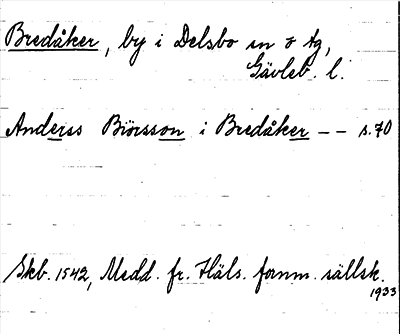 Bredåker, by i Delsbo sn o tg,
Gävleb. l.
Anderss Biörsson i Bredåker -- s. 70
Skb. 1542, Medd. fr. Häls. fornm. sällsk.
1933